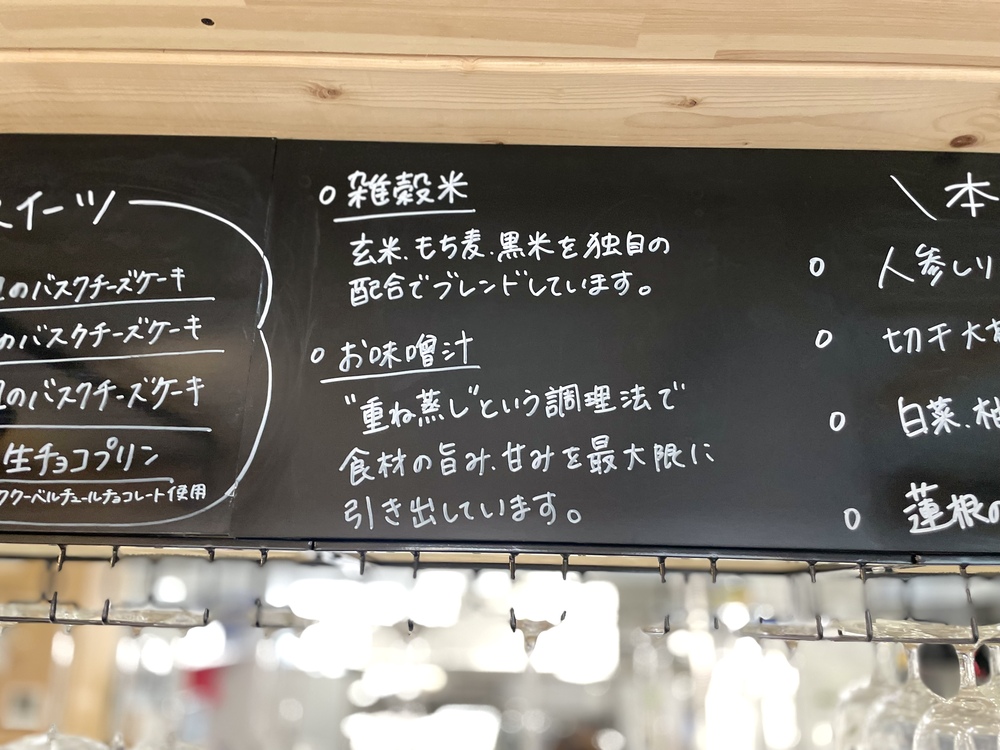 スイーツ
のバスクチーズケーキ
のバスクチーズケーキ
のバスクチーズケーキ
生チョコプリン
クーベルチュールチョコレート使用
○ 雑穀米
玄米、もち麦、黒米を独自の
配合でブレンドしています。
○ お味噌汁
"重ね蒸し"という調理法で
食材の旨み、甘みを最大限に
引き出しています。
\ 本
○ 人参しり
○ 切干大
○ 白菜、柚
○ 蓮根の